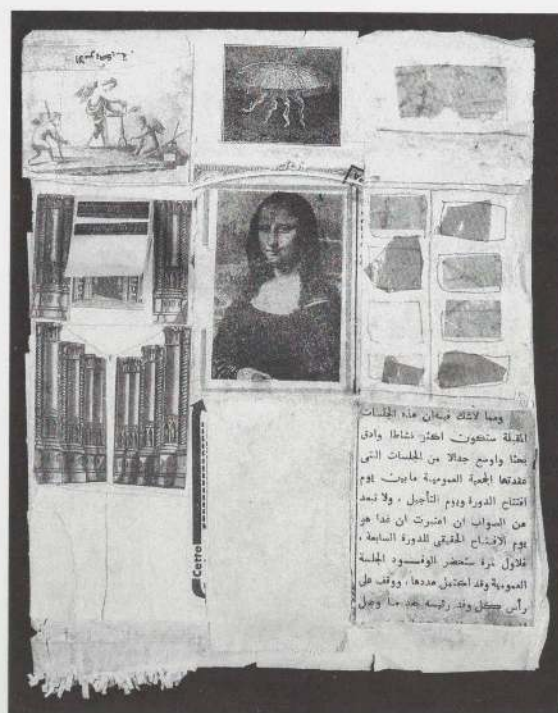 Cette
ومما لاشك فيه ان هذه الجلسات
المقبلة ستكون اكثر نشاطا وادق
بحثا واوسع جدالا من الجلسات التى
عقدتها الجمعية العمومية مابين يوم
افتتاح الدورة ويوم التأجيل ، ولا نبعد
عن الصواب ان اعتبرت ان غدا هو
يوم الافتتاح الحقيقي للدورة السابعة ،
فلاول مرة ستحضر الوفود الجلسة
العمومية وقد اكتمل عددها ، ووقف على
رأس كل وفد رئيسه بعد ما وصل